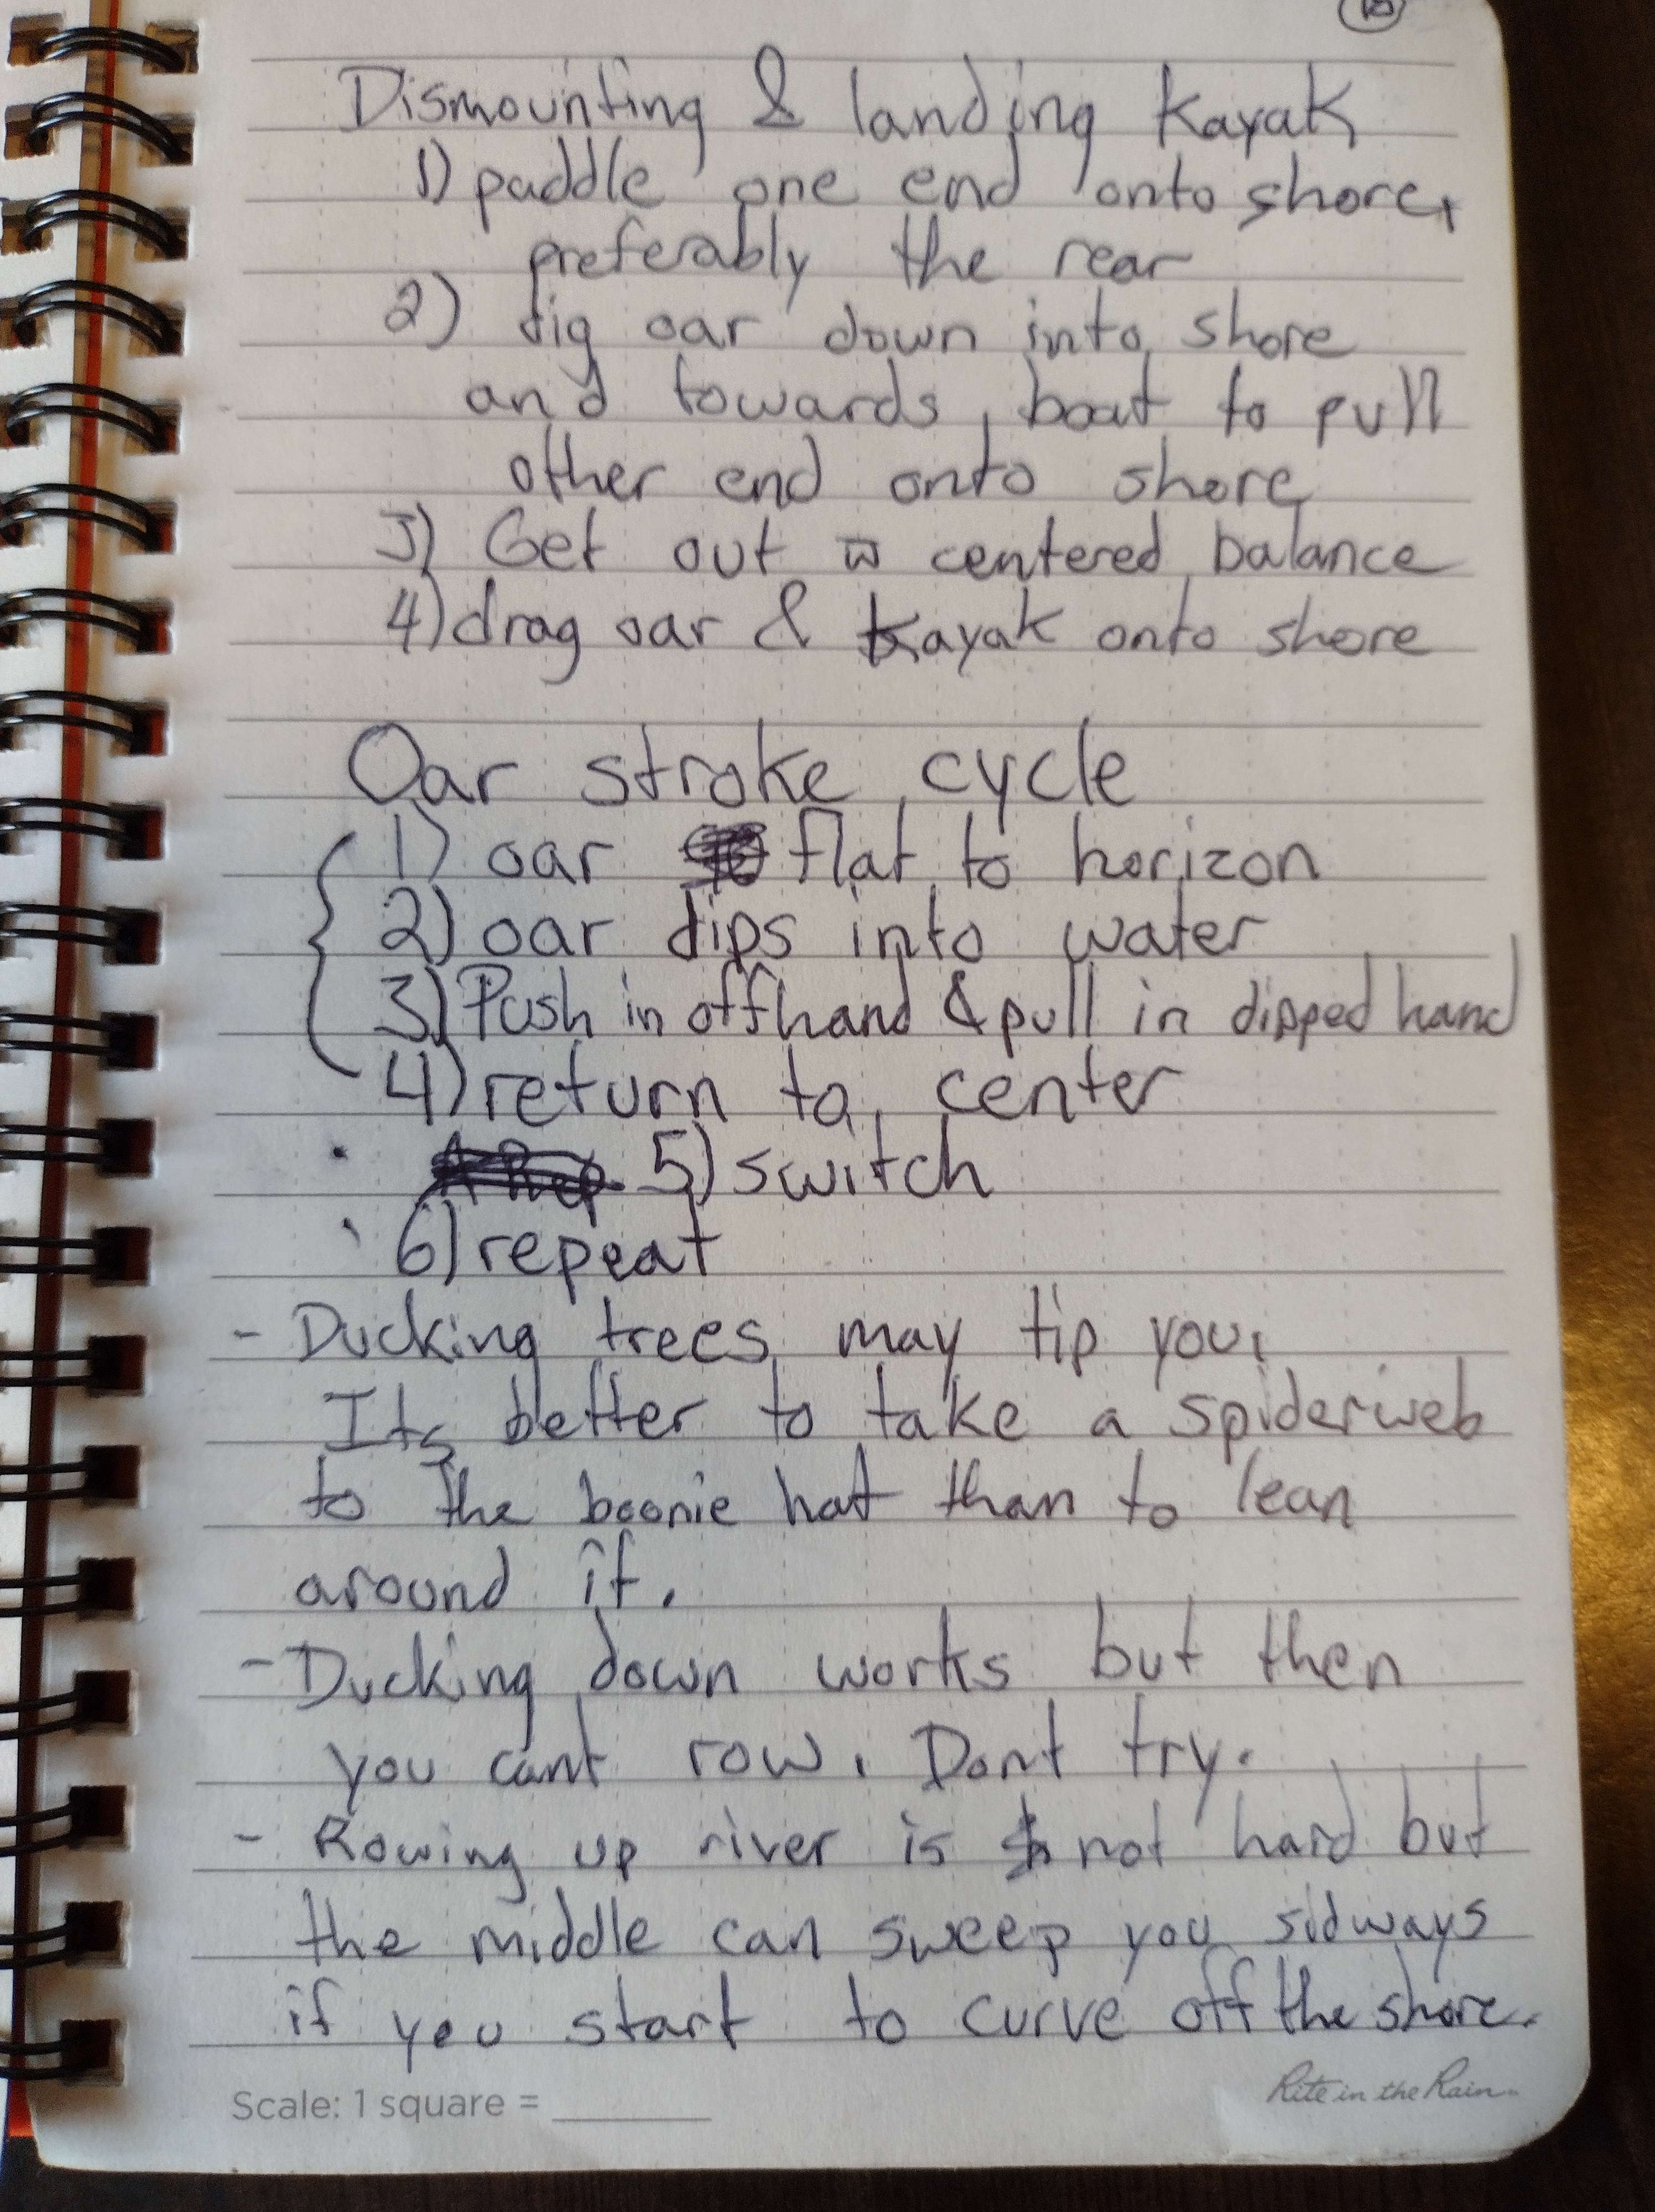 Dismounting & landing kayak
1) paddle one end onto shore,
preferably the rear
2) dig oar down into shore
and towards boat to pull
other end onto shore
3) Get out w centered balance
4) drag oar & kayak onto shore
Oar stroke cycle
1) oar flat to horizon
2) oar dips into water
3) Push in offhand & pull in dipped hand
4) return to center
5) switch
6) repeat
- Ducking trees may tip you.
Its better to take a spiderweb
to the boonie hat than to lean
around it.
- Ducking down works but then
you cant row. Dont try.
- Rowing up river is not hard but
the middle can sweep you sidways
if you start to curve off the shore.
Scale: 1 square = ______
Rite in the Rain